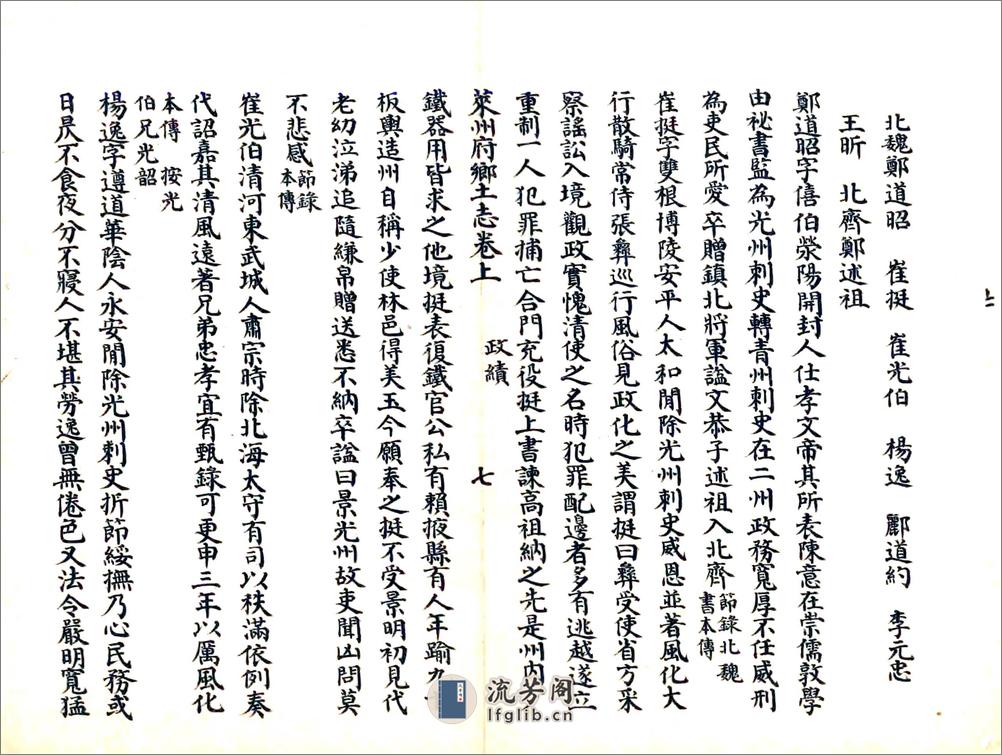 北魏鄭道昭 崔挺 崔光伯 楊逸 酈道約 李元忠
王昕 北齊鄭述祖
鄭道昭字僖伯滎陽開封人仕孝文帝其所表陳意在崇儒敦學
由祕書監為光州刺史轉青州刺史在二州政務寬厚不任威刑
為吏民所愛卒贈鎮北將軍諡文恭子述祖入北齊節錄北魏書本傳
崔挺字雙根博陵安平人太和閒除光州刺史威恩並著風化大
行散騎常侍張彝巡行風俗見政化之美謂挺曰彝受使省方采
察謠訟入境觀政實愧清使之名時犯罪配邊者多有逃越遂立
重制一人犯罪捕亡合門充役挺上書諫高祖納之先是州內
萊州府鄉土志卷上 政績 七
鐵器用皆求之他境挺表復鐵官公私有賴掖縣有人年踰九
板輿造州自稱少使林邑得美玉今願奉之挺不受景明初見代
老幼泣涕追隨縑帛贈送悉不納卒諡曰景光州故吏聞凶問莫
不悲感節錄本傳
崔光伯清河東武城人肅宗時除北海太守有司以秩滿依例奏
代詔嘉其清風遠著兄弟忠孝宜有甄錄可更申三年以厲風化
本傳 按光伯兄光韶
楊逸字遵道華陰人永安閒除光州刺史折節綏撫乃心民務或
日昃不食夜分不寢人不堪其勞逸曾無倦色又法令嚴明寬猛
流芳阁
lfglib.cn